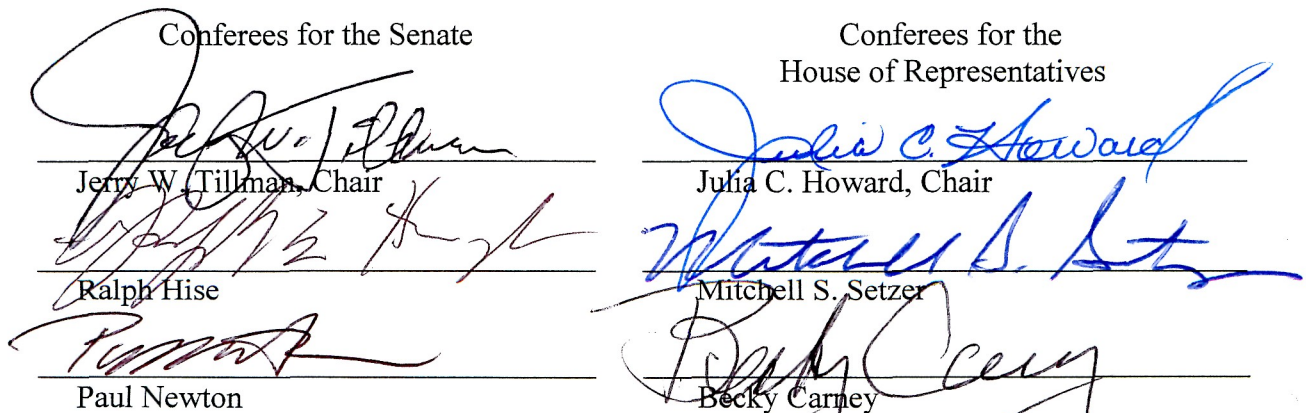 Conferees for the Senate
Jerry W. Tillman
Jerry W. Tillman, Chair
Ralph Hise
Paul Newton
Conferees for the
House of Representatives
Julia C. Howard
Julia C. Howard, Chair
Mitchell S. Setzer
Mitchell S. Setzer
Becky Carney
Becky Carney